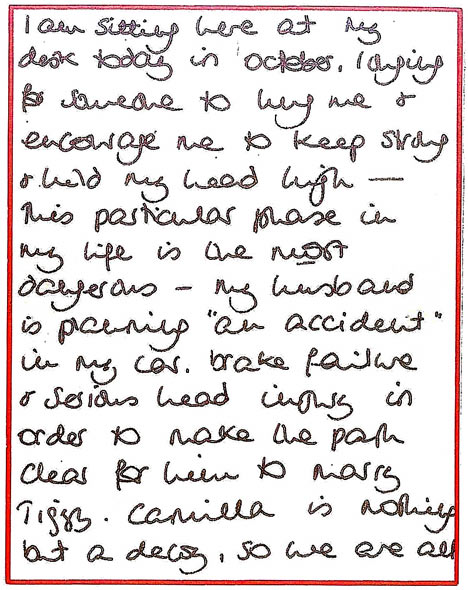 I am sitting here at my
desk today in october, longing
for someone to hug me &
encourage me to keep strong
& hold my head high —
This particular phase in
my life is the most
dangerous – my husband
is planning "an accident"
in my car. brake failure
& serious head injury in
order to make the path
clear for him to marry
Tiggy. Camilla is nothing
but a decoy, so we are all